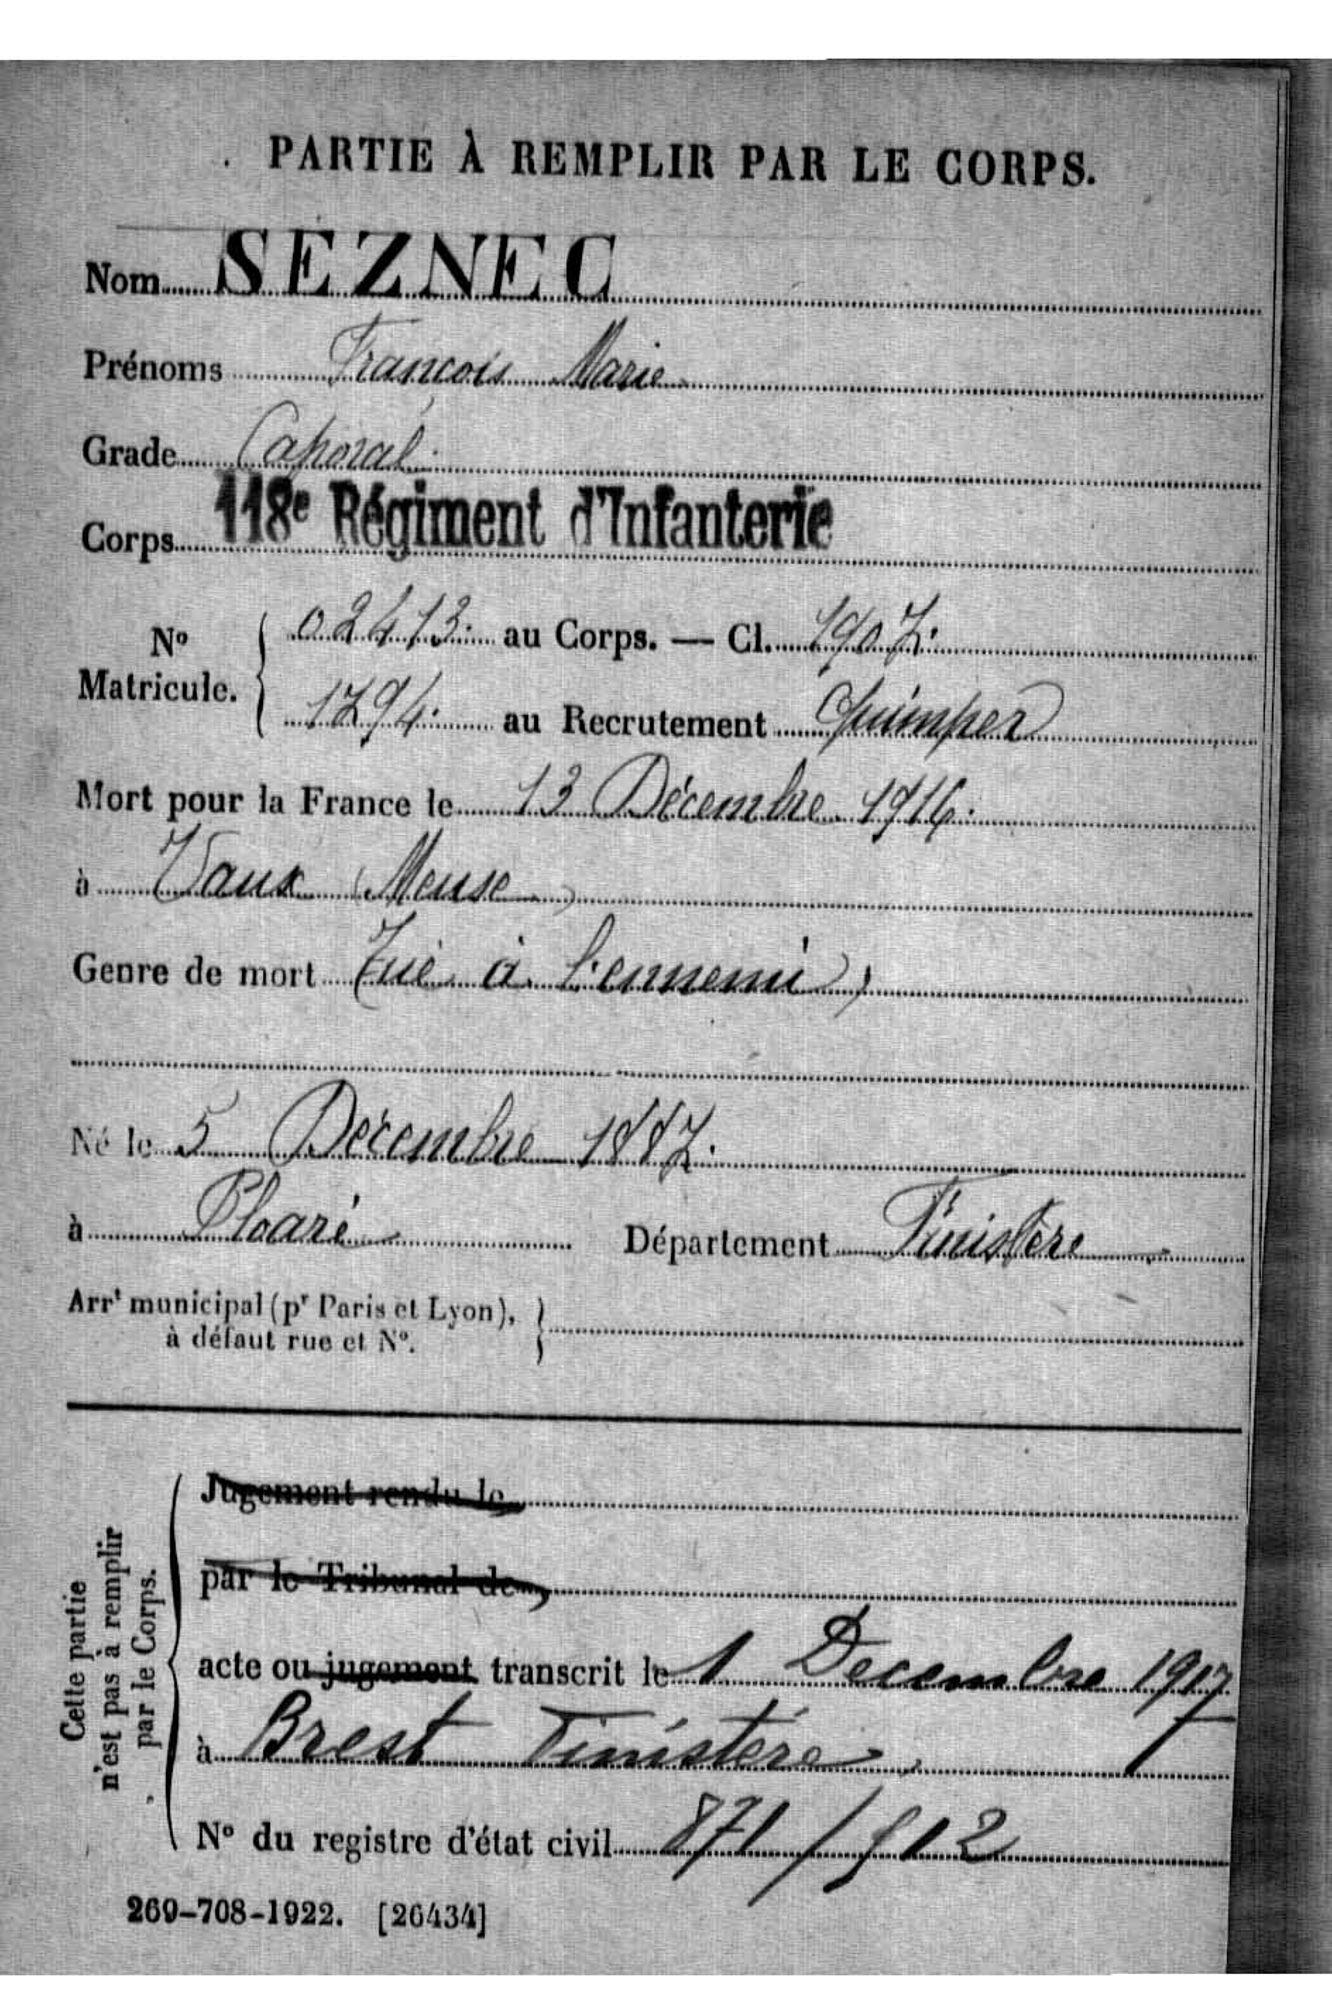 PARTIE À REMPLIR PAR LE CORPS.
Nom SEZNEC
Prénoms François Marie
Grade Caporal
Corps 118e Régiment d'Infanterie
No Matricule. 02413. au Corps. — Cl. 1907.
1794. au Recrutement Quimper
Mort pour la France le 13 Décembre 1916.
à Vaux (Meuse)
Genre de mort Tué à l'ennemi
Né le 5 Décembre 1887.
à Ploaré Département Finistère
Arrt municipal (pr Paris et Lyon),
à défaut rue et No.
Cette partie
n'est pas à remplir
par le Corps.
Jugement rendu le
par le Tribunal de
acte ou jugement transcrit le 1 Decembre 1917
à Brest Finistére
No du registre d'état civil 871/912
269-708-1922. [26434]